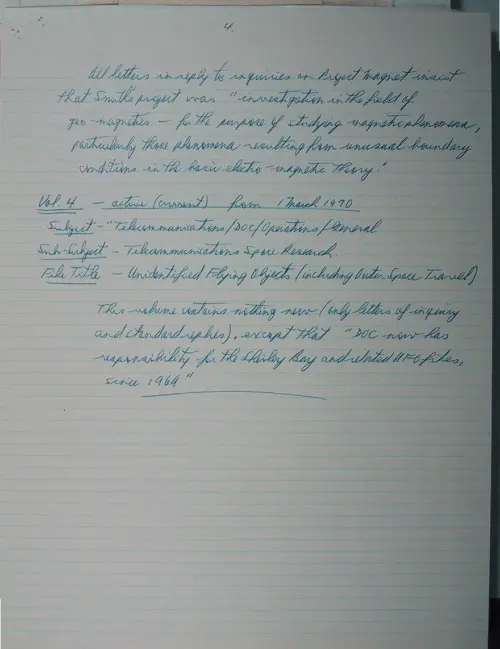 4.
All letters in reply to inquiries on Project Magnet insist
that Smith's project was "investigation in the field of
geo-magnetics — for the purpose of studying magnetic phenomena,
particularly those phenomena resulting from unusual boundary
conditions in the basic electro-magnetic theory."
Vol. 4 — active (current) from 1 March 1970
Subject — "Telecommunications/DOC/Operations/General
Sub-Subject — Telecommunications Space Research.
File Title — Unidentified Flying Objects (including Outer Space Travel)
This volume contains nothing new (only letters of inquiry
and standard replies), except that "DOC now has
responsibility for the Shirley Bay and related UFO files,
since 1969"